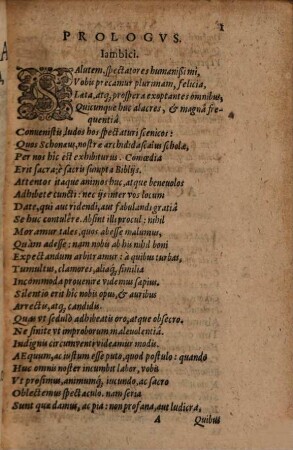 1
PROLOGVS.
Iambici.
SAlutem, spectatores humanißimi,
Vobis precamur plurimam, felicia,
Læta, atq; prospera exoptantes omnibus,
Quicunque huc alacres, & magna fre
quentia
Convenistis, ludos hos spectaturi scænicos:
Quos Schonæus, nostræ archididascalus scholæ,
Per nos hic est exhibiturus. Comœdia
Erit sacra; è sacris sumpta Biblijs.
Attentos itaque animos huc, atque beneuolos
Adhibete cuncti: nec ijs inter vos locum
Date, qui aut ridendi, aut fabulandi gratiâ
Se huc contulêre. Absint illi procul: nihil
Moramur tales, quos abesse malumus,
Quàm adesse: nam nobis ab his nihil boni
Expectandum arbitramur: à quibus turbas,
Tumultus, clamores, aliaq́; similia
Incommoda prouenire videmus sæpius.
Silentio erit hîc nobis opus, & auribus
Arrectis, atq; candidis.
Quas vt sedulò adhibeatis oro, atque obsecro.
Ne sinite vt improborum maleuolentiâ
Indignis circumventi videamur modis.
AEquum, ac iustum esse puto, quod postulo: quando
Huc omnis noster incumbit labor, vobis
Vt prosimus, animumq́; iucundo, ac sacro
Oblectemus spectaculo. nam seria
Sunt quæ damus, ac pia: non profana, aut ludicra,
A Quibus